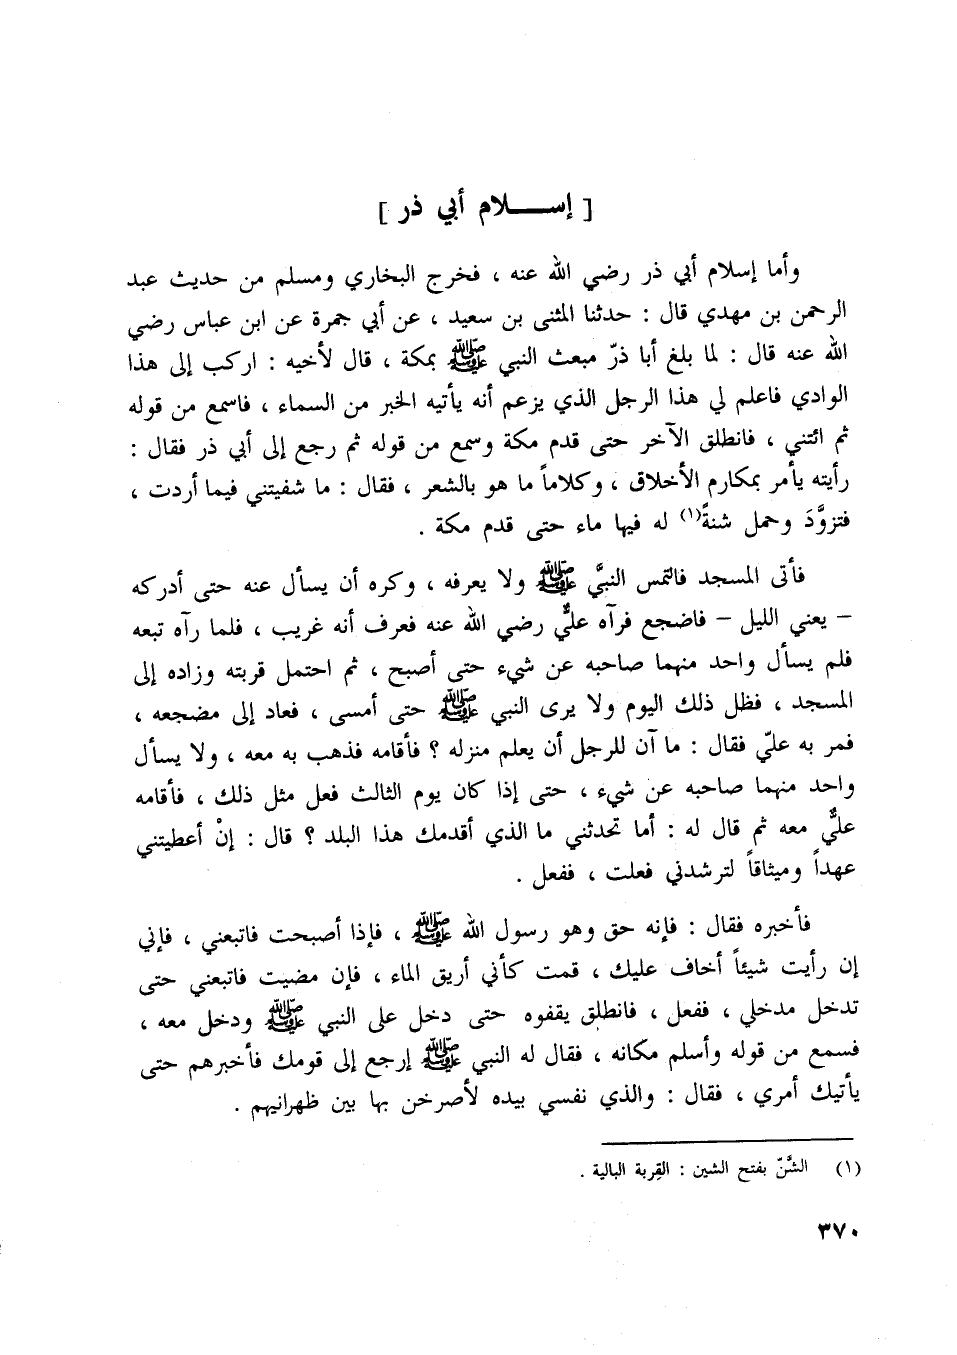 [ إســـلام أبي ذر ]
وأما إسلام أبي ذر رضي الله عنه ، فخرج البخاري ومسلم من حديث عبد
الرحمن بن مهدي قال : حدثنا المثنى بن سعيد ، عن أبي جمرة عن ابن عباس رضي
الله عنه قال : لما بلغ أبا ذرّ مبعث النبي ﷺ بمكة ، قال لأخيه : اركب إلى هذا
الوادي فاعلم لي هذا الرجل الذي يزعم أنه يأتيه الخبر من السماء ، فاسمع من قوله
ثم ائتني ، فانطلق الآخر حتى قدم مكة وسمع من قوله ثم رجع إلى أبي ذر فقال :
رأيته يأمر بمكارم الأخلاق ، وكلاماً ما هو بالشعر ، فقال : ما شفيتني فيما أردت ،
فتزوَّدَ وحمل شنةً(١) له فيها ماء حتى قدم مكة .
فأتى المسجد فالتمس النبيَّ ﷺ ولا يعرفه ، وكره أن يسأل عنه حتى أدركه
– يعني الليل – فاضجع فرآه عليٌّ رضي الله عنه فعرف أنه غريب ، فلما رآه تبعه
فلم يسأل واحد منهما صاحبه عن شيء حتى أصبح ، ثم احتمل قربته وزاده إلى
المسجد ، فظل ذلك اليوم ولا يرى النبي ﷺ حتى أمسى ، فعاد إلى مضجعه ،
فمر به عليّ فقال : ما آن للرجل أن يعلم منزله ؟ فأقامه فذهب به معه ، ولا يسأل
واحد منهما صاحبه عن شيء ، حتى إذا كان يوم الثالث فعل مثل ذلك ، فأقامه
عليٌّ معه ثم قال له : أما تحدثني ما الذي أقدمك هذا البلد ؟ قال : إنْ أعطيتني
عهداً وميثاقاً لترشدني فعلت ، ففعل .
فأخبره فقال : فإنه حق وهو رسول الله ﷺ ، فإذا أصبحت فاتبعني ، فإني
إن رأيت شيئاً أخاف عليك ، قمت كأني أريق الماء ، فإن مضيت فاتبعني حتى
تدخل مدخلي ، ففعل ، فانطلق يقفوه حتى دخل على النبي ﷺ ودخل معه ،
فسمع من قوله وأسلم مكانه ، فقال له النبي ﷺ إرجع إلى قومك فأخبرهم حتى
يأتيك أمري ، فقال : والذي نفسي بيده لأصرخن بها بين ظهرانيهم .
(١) الشَّنّ بفتح الشين : القِربة البالية .
٣٧٠